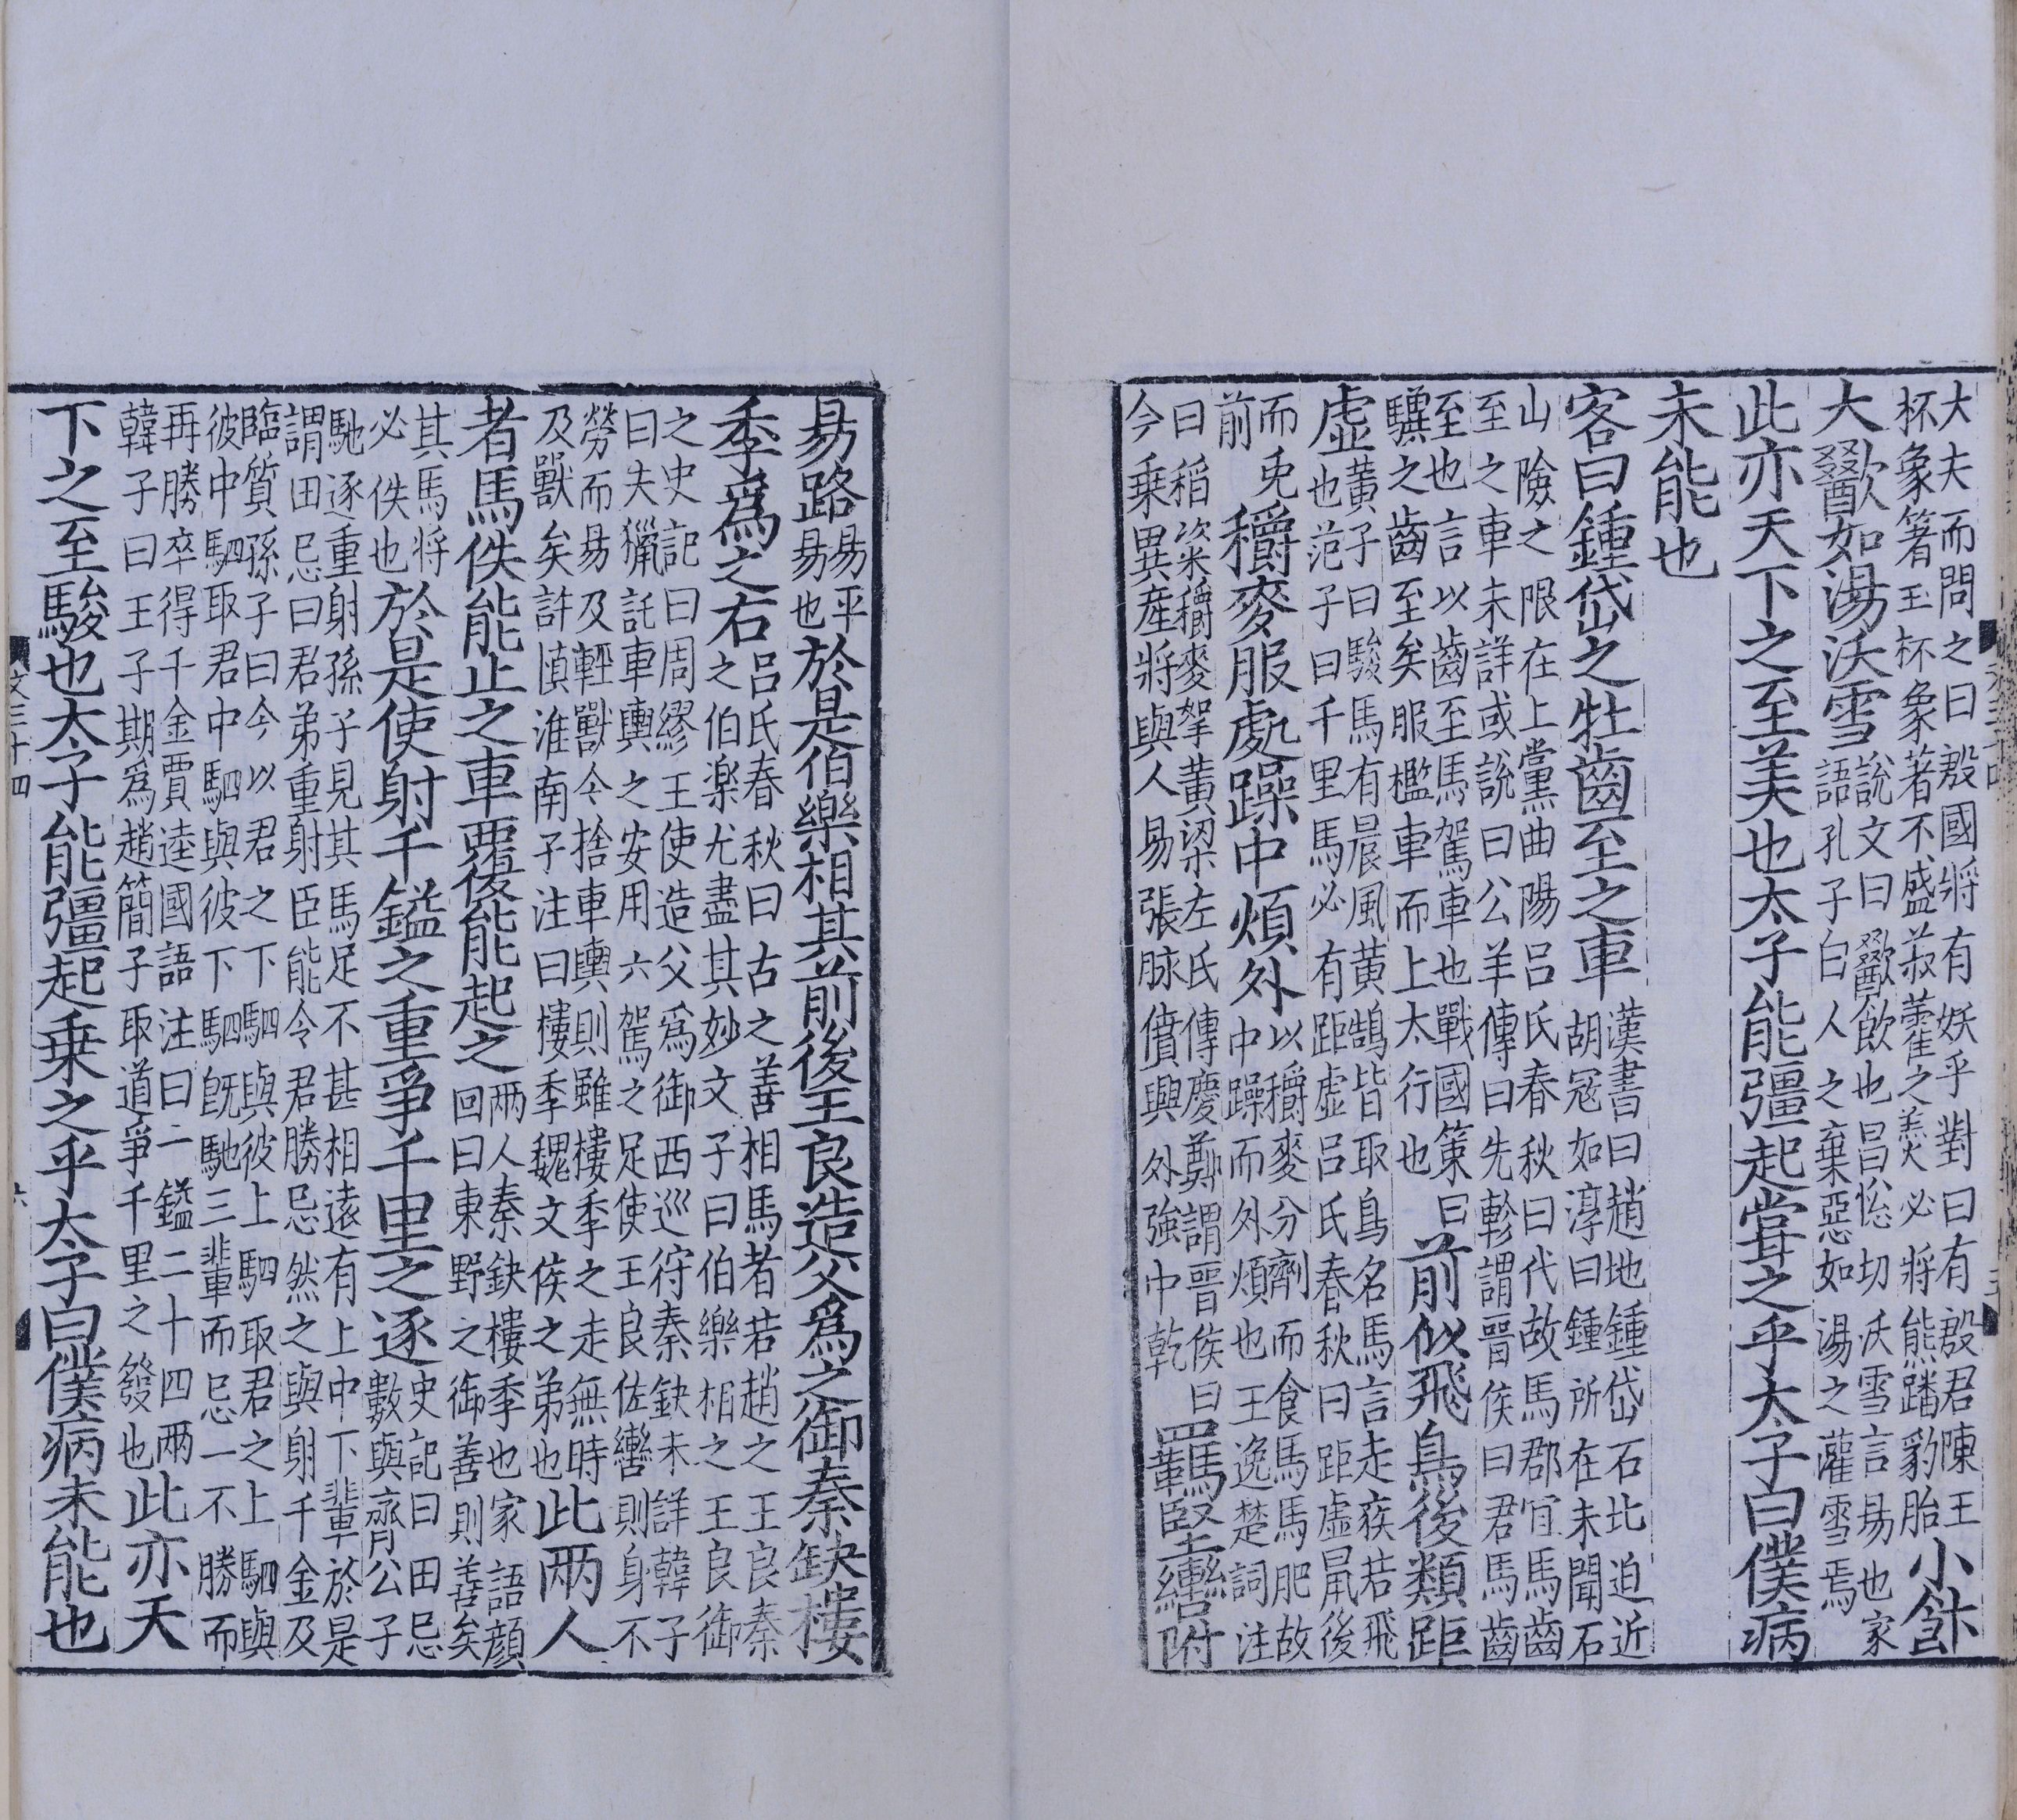 大夫而問之曰殷國將有妖乎對曰有殷君陳王
杯象箸玉杯象著不盛菽藿之羹必將熊蹯豹胎小飰
大歠如湯沃雪說文曰歠飲也昌悦切沃雪言易也家
語孔子白人之棄惡如湯之灌雪焉
此亦天下之至美也太子能彊起甞之乎太子曰僕病
未能也
客曰鍾岱之牡齒至之車漢書曰趙地鍾岱石北迫近
胡冦如淳曰鍾所在未聞石
山險之限在上黨曲陽吕氏春秋曰代故馬郡宜馬齒
至之車未詳或說曰公羊傳曰先軫謂晉侯曰君馬齒
至也言以齒至馬駕車也戰國策曰
驥之齒至矣服檻車而上太行也前似飛鳥後類距
虚黃子曰駿馬有晨風黃鵠皆取鳥名馬言走疾若飛
也范子曰千里馬必有距虚吕氏春秋曰距虚鼠後
而兎
前穱麥服處躁中煩外以穱麥分劑而食馬馬肥故
中躁而外煩也王逸楚詞注
曰稻粢穱麥挐黃梁左氏傳慶鄭謂晉侯曰
今乗異産將與人易張脉僨興外強中乾羈堅轡附
易路易平
易也於是伯樂相其前後王良造父爲之御秦缺樓
季爲之右吕氏春秋曰古之善相馬者若趙之王良秦
之伯楽尤盡其妙文子曰伯樂相之王良御
之史記曰周繆王使造父爲御西巡狩秦缺未詳韓子
曰夫獵託車輿之安用六駕之足使王良佐轡則身不
勞而易及輕獸今捨車輿則雖樓季之走無時
及獸矣許慎淮南子注曰樓季魏文侯之弟也此兩人
者馬佚能止之車覆能起之兩人秦缺樓季也家語顔
回曰東野之御善則善矣
其馬將
必佚也於是使射千鎰之重爭千里之逐史記曰田忌
數與齊公子
馳逐重射孫子見其馬足不甚相逺有上中下輩於是
謂田忌曰君弟重射臣能令君勝忌然之與射千金及
臨質孫子曰今以君之下駟與彼上駟取君之上駟與
彼中駟取君中駟與彼下駟旣馳三輩而忌一不勝而
再勝卒得千金賈逵國語注曰一鎰二十四兩
韓子曰王子期爲趙簡子取道爭千里之發也此亦天
下之至駿也太子能彊起乗之乎太子曰僕病未能也
文三十四
六